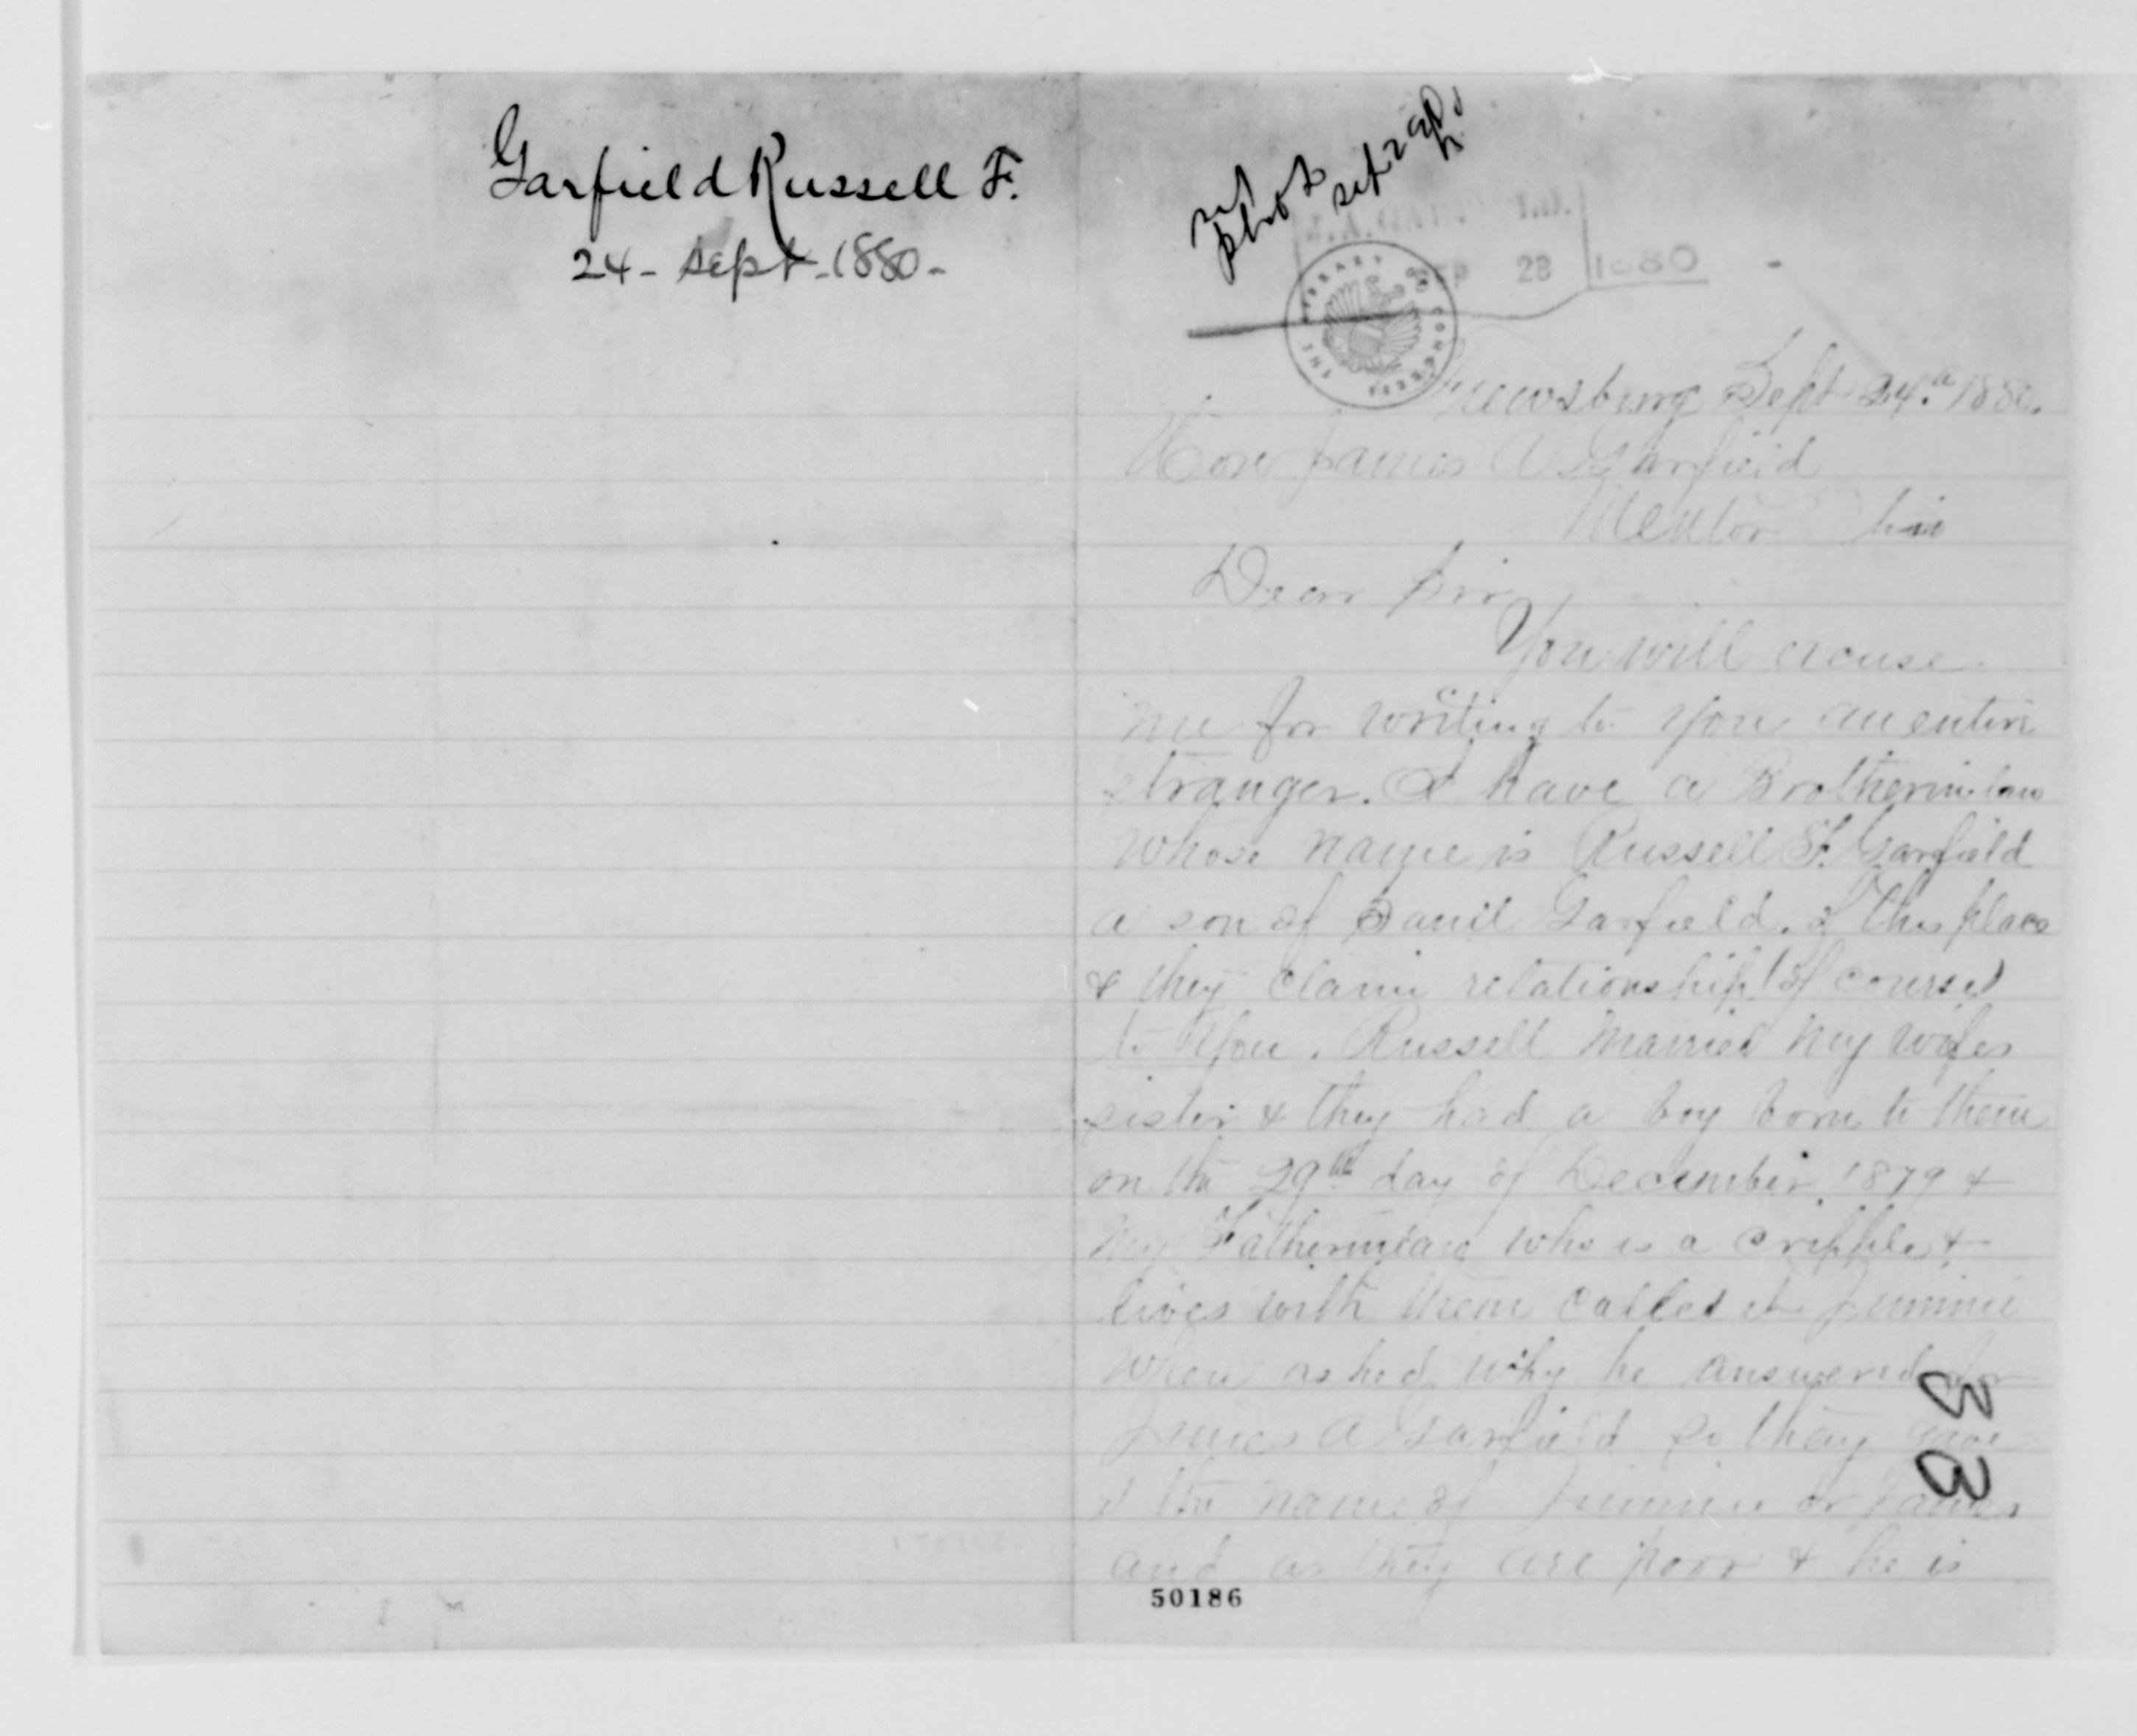 Garfield Russell F.
24 - Sept - 1880 -
photo
sept 29
J.A.
28 1880
THE LIBRARY OF CONGRESS
Frewsburg Sept 24. 1880.
Hon James A Garfield
Mentor
Dear Sir,
You will excuse
me for writing to you an entire
stranger. I have a Brotherinlaw
whose name is Russell F. Garfield
a son of Daniel Garfield. of this place
& they claim relationship (of course)
to you. Russell married my wifes
sister & they had a boy born to them
on the 29th day of December 1879 &
my Fatherinlaw who is a cripple &
lives with them called it Jimmie
when asked why he answered for
James A Garfield so they gave
it the name of Jimmie or James
and as they are poor & he is
50186